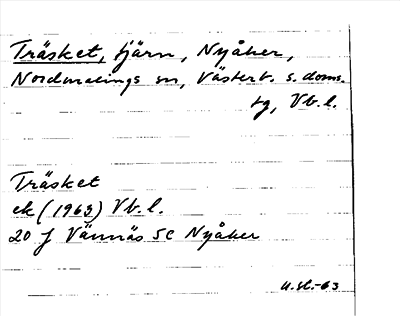 Träsket, tjärn, Nyåker,
Nordmalings sn, Västerb. s. doms.
tg, Vb. l.
Träsket
ek (1963) Vb. l.
20 J Vännäs SC Nyåker
u.sl.-63